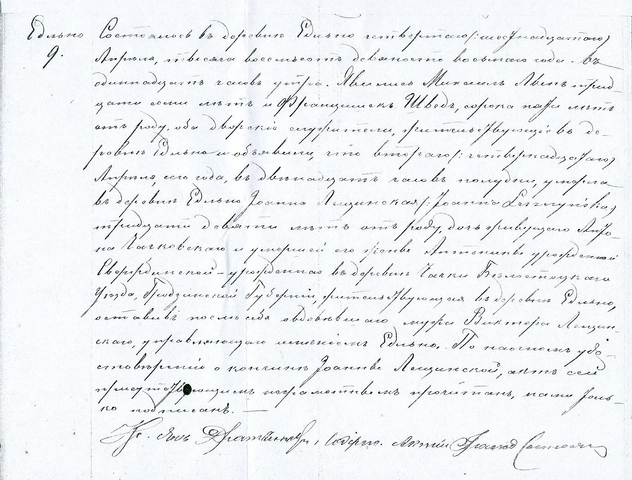 Едльно Состоялось въ деревнѣ Едльно четвертаго /: шестнадцатаго /
9. Апрѣля, тысяча восемьсотъ девяносто восьмаго года. Въ
одинадцать часовъ утра. Явились Михаилъ Левъ трид
цати семи лѣтъ и Францишекъ Шведъ, сорока пяти лѣтъ
отъ роду, оба дворскіе служители, жительствующіе въ де
ревнѣ Едльно и объявили, что втораго /: четырнадцатаго /
Апрѣля, сего года, въ двѣнадцать часовъ полудни, умерла
въ деревнѣ Едльно Іоанна Лещинская /: Joanna Leszczyńska /
тридцати девяти лѣтъ отъ роду, дочь живущаго Анто
на Чачковскаго и умершей его жены Антонины урожденной
урожденная въ деревнѣ Чачки Бѣлостоцкаго
Уѣзда, Гродзинской Губерніи, жительствующая въ деревнѣ Едльно,
оставивъ послѣ себя овдовѣвшаго мужа Виктора Лещин
скаго, управляющаго имѣніемъ Едльно. По настоящемъ удо
стовѣреніи о кончинѣ Іоанны Лещинской, актъ сей
присутствующимъ неграмотнымъ прочитанъ, нами толь
ко подписанъ. —
Кс. Янъ Содерж. Актовъ